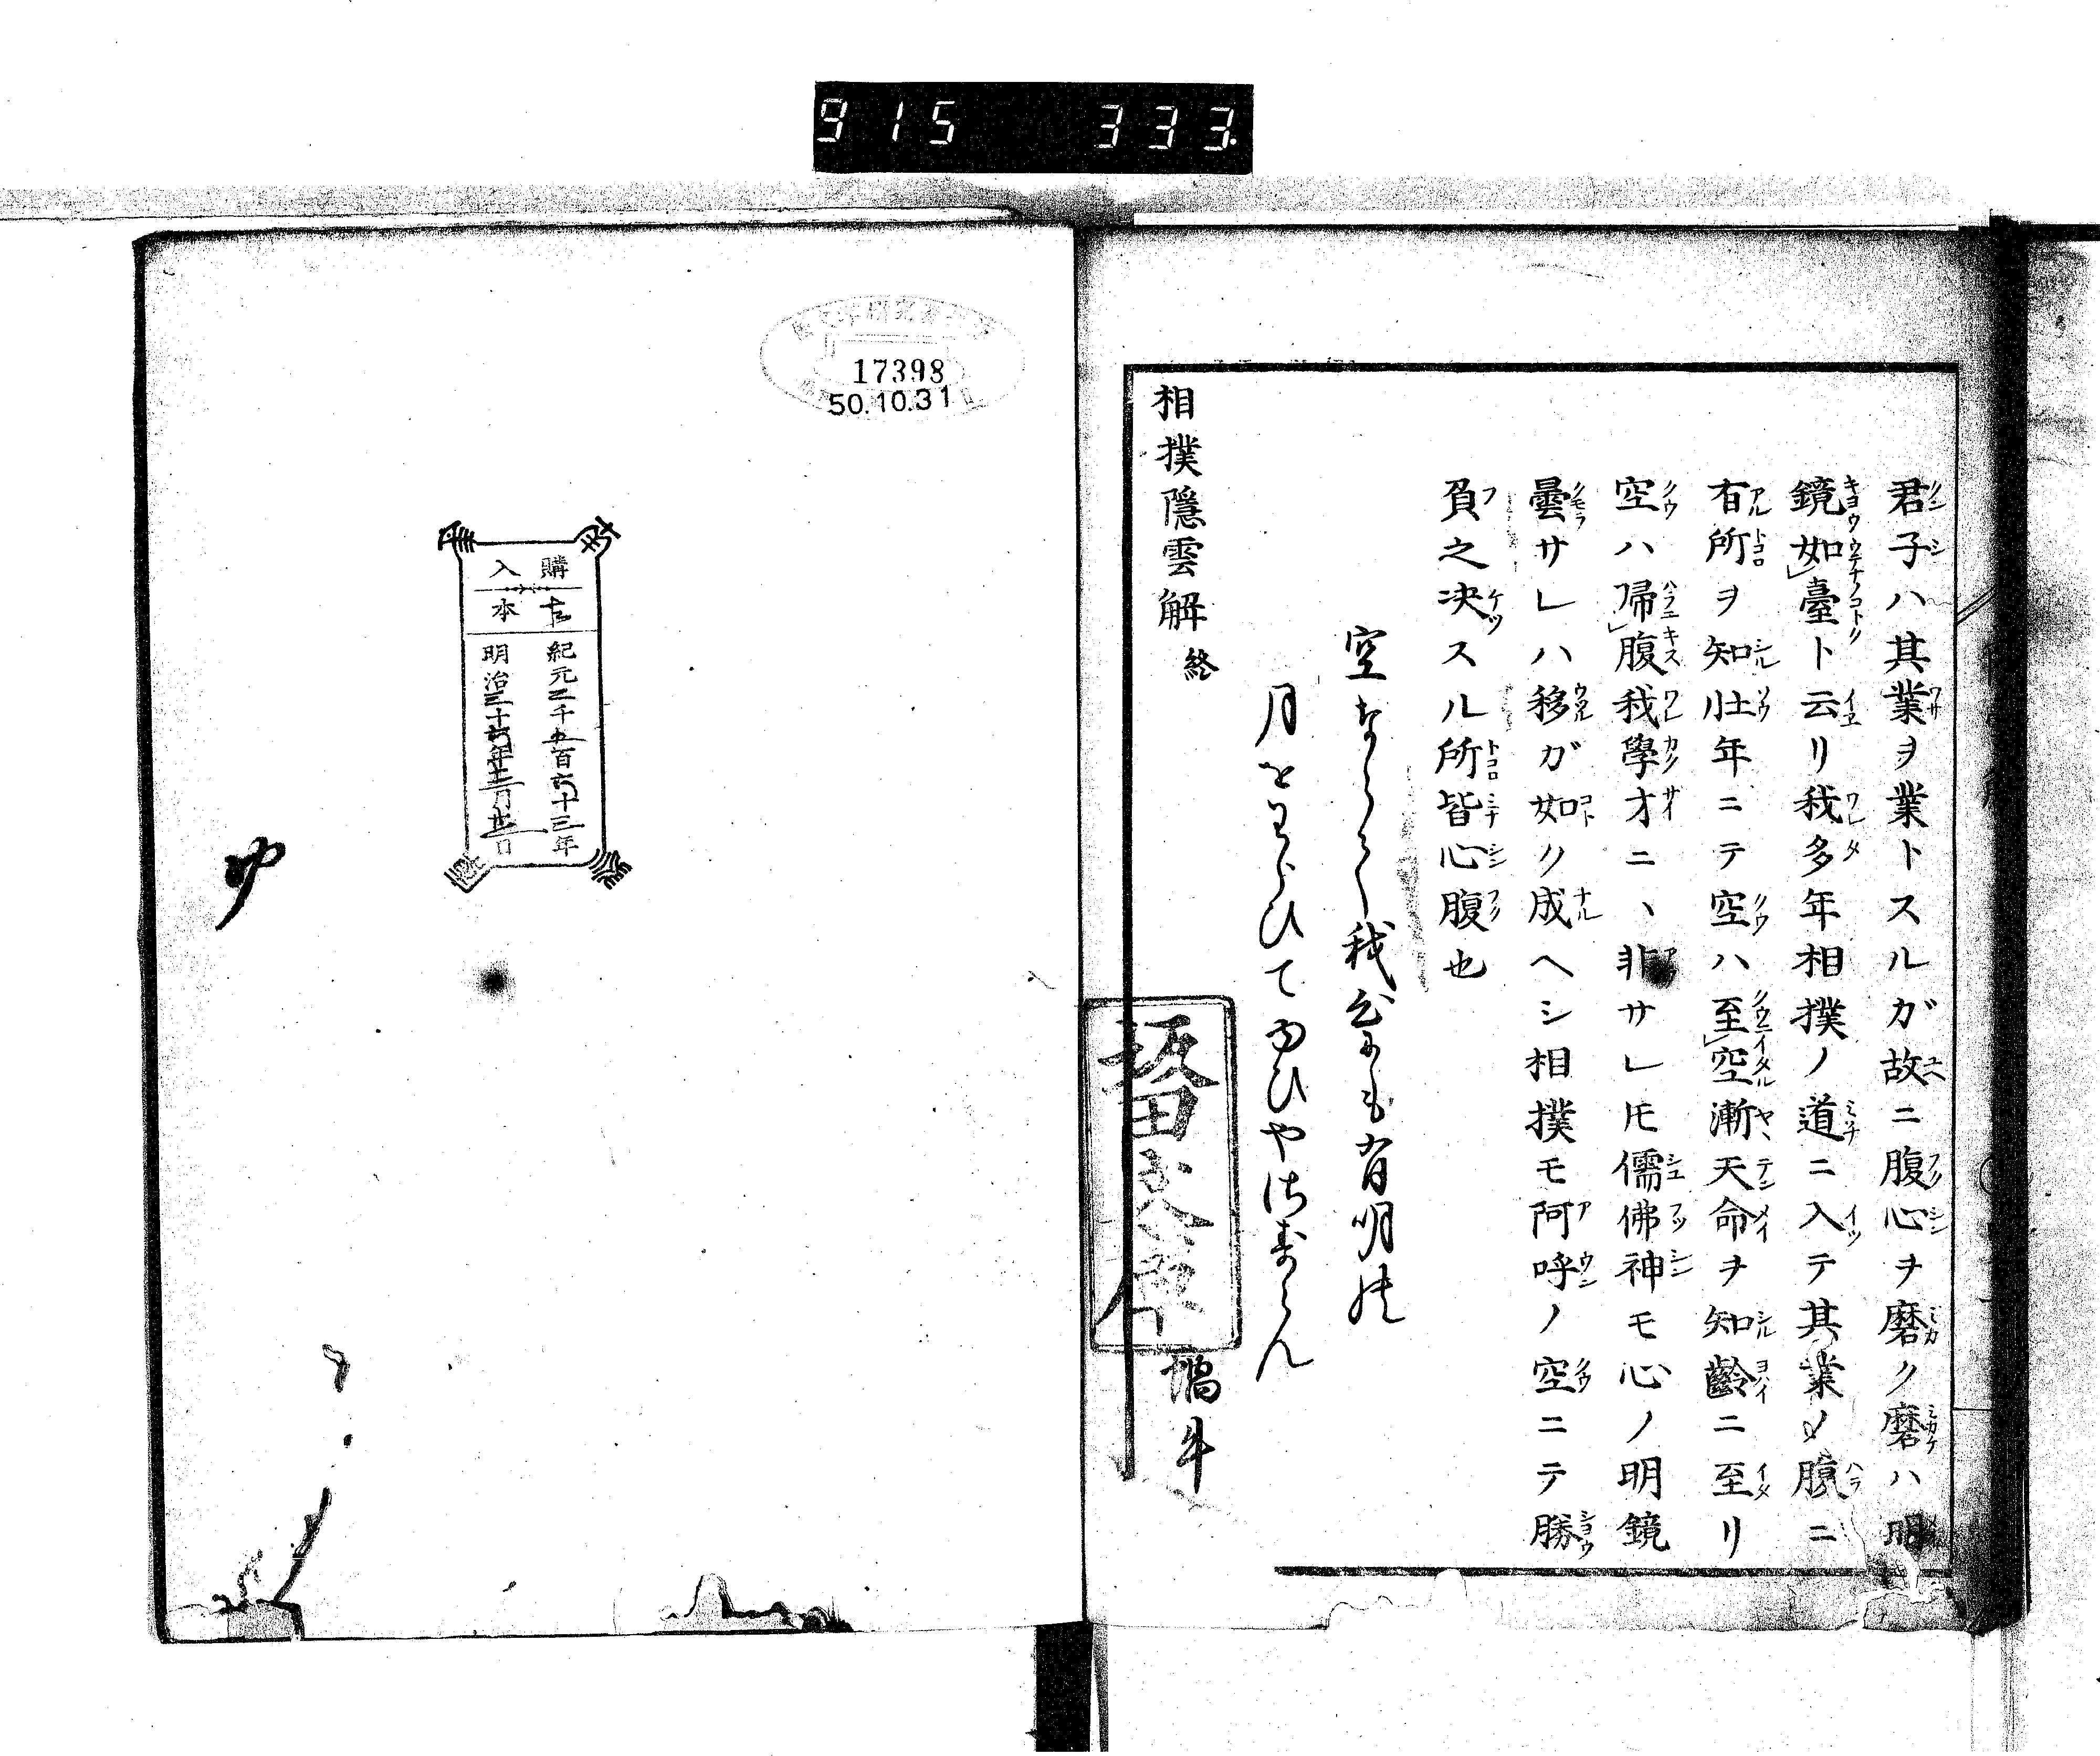 915 333
君子ハ其業ヲ業トスルガ故ニ腹心ヲ磨ク磨ハ明
鏡如臺ト云リ我多年相撲ノ道ニ入テ其業ノ腹ニ
有所ヲ知壮年ニテ空ハ至空漸天命ヲ知齢ニ至リ
空ハ帰腹我學才ニヽ非サレ𪜈儒佛神モ心ノ明鏡
曇サレハ移ガ如ク成ヘシ相撲モ阿呼ノ空ニテ勝
負之决スル所皆心腹也
空
我
も有明の
月を
ひて
ひや
ん
相撲隠雲解終
蝸牛
17398
50.10.31
購入
本
紀元二千五百六十三年
明治三十六年
月
日